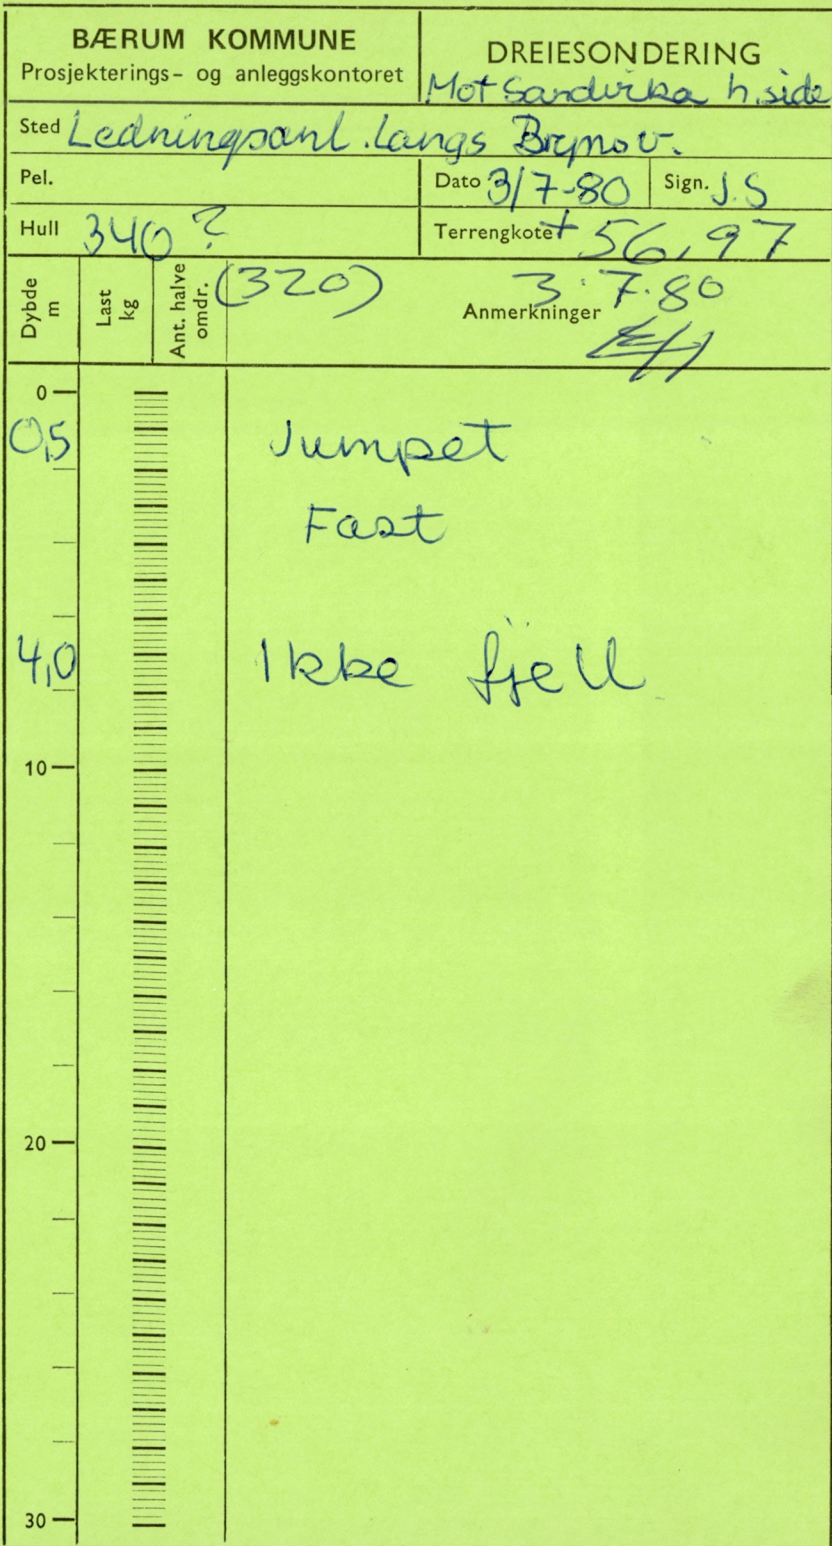 BÆRUM KOMMUNE
Prosjekterings- og anleggskontoret
DREIESONDERING
Mot Sandvika h.side
Sted Ledningsanl. langs Brynsv.
Pel.
Dato 3/7-80 Sign. J.S
Hull 340?
Terrengkote + 56,97
Dybde m
Last kg
Ant. halve omdr.
(320)
3.7.80
Anmerkninger
0
0,5 Jumpet
Fast
4,0 Ikke fjell
10
20
30